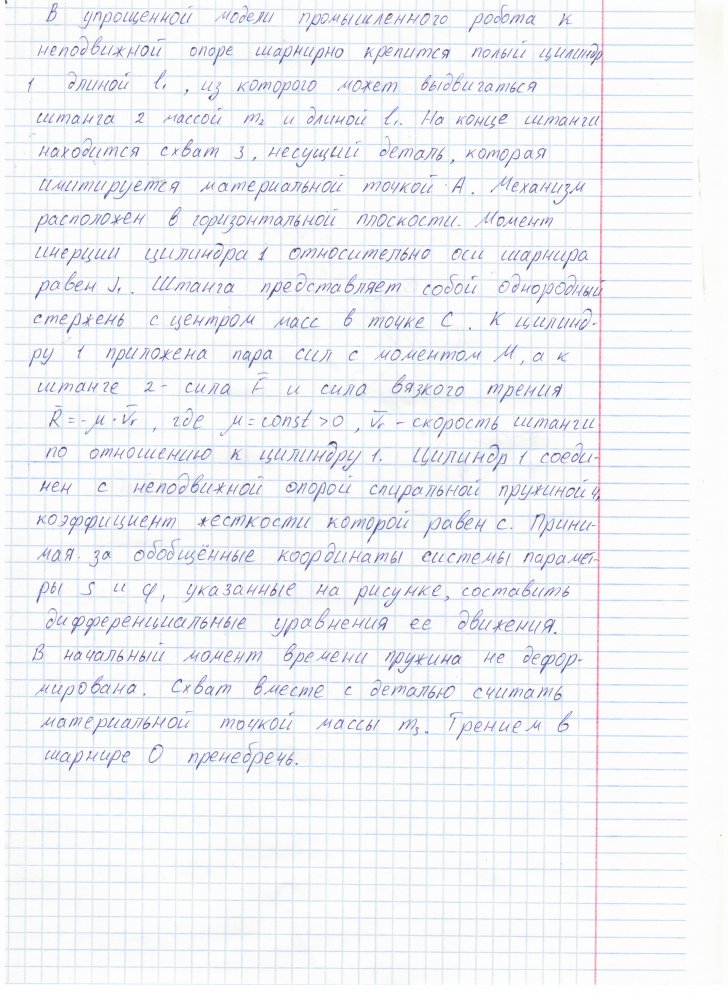 В упрощенной модели промышленного робота к
неподвижной опоре шарнирно крепится полый цилиндр
1 длиной l₁, из которого может выдвигаться
штанга 2 массой m₂ и длиной l₁. На конце штанги
находится схват 3, несущий деталь, которая
имитируется материальной точкой А. Механизм
расположен в горизонтальной плоскости. Момент
инерции цилиндра 1 относительно оси шарнира
равен J₁. Штанга представляет собой однородный
стержень с центром масс в точке С. К цилинд-
ру 1 приложена пара сил с моментом М, а к
штанге 2 - сила F̅ и сила вязкого трения
R̅ = -μ · V̅r, где μ = const > 0, V̅r - скорость штанги
по отношению к цилиндру 1. Цилиндр 1 соеди-
нен с неподвижной опорой спиральной пружиной 4,
коэффициент жесткости которой равен с. Прини-
мая за обобщённые координаты системы парамет-
ры s и φ, указанные на рисунке, составить
дифференциальные уравнения ее движения.
В начальный момент времени пружина не дефор-
мирована. Схват вместе с деталью считать
материальной точкой массы m₃. Трением в
шарнире О пренебречь.